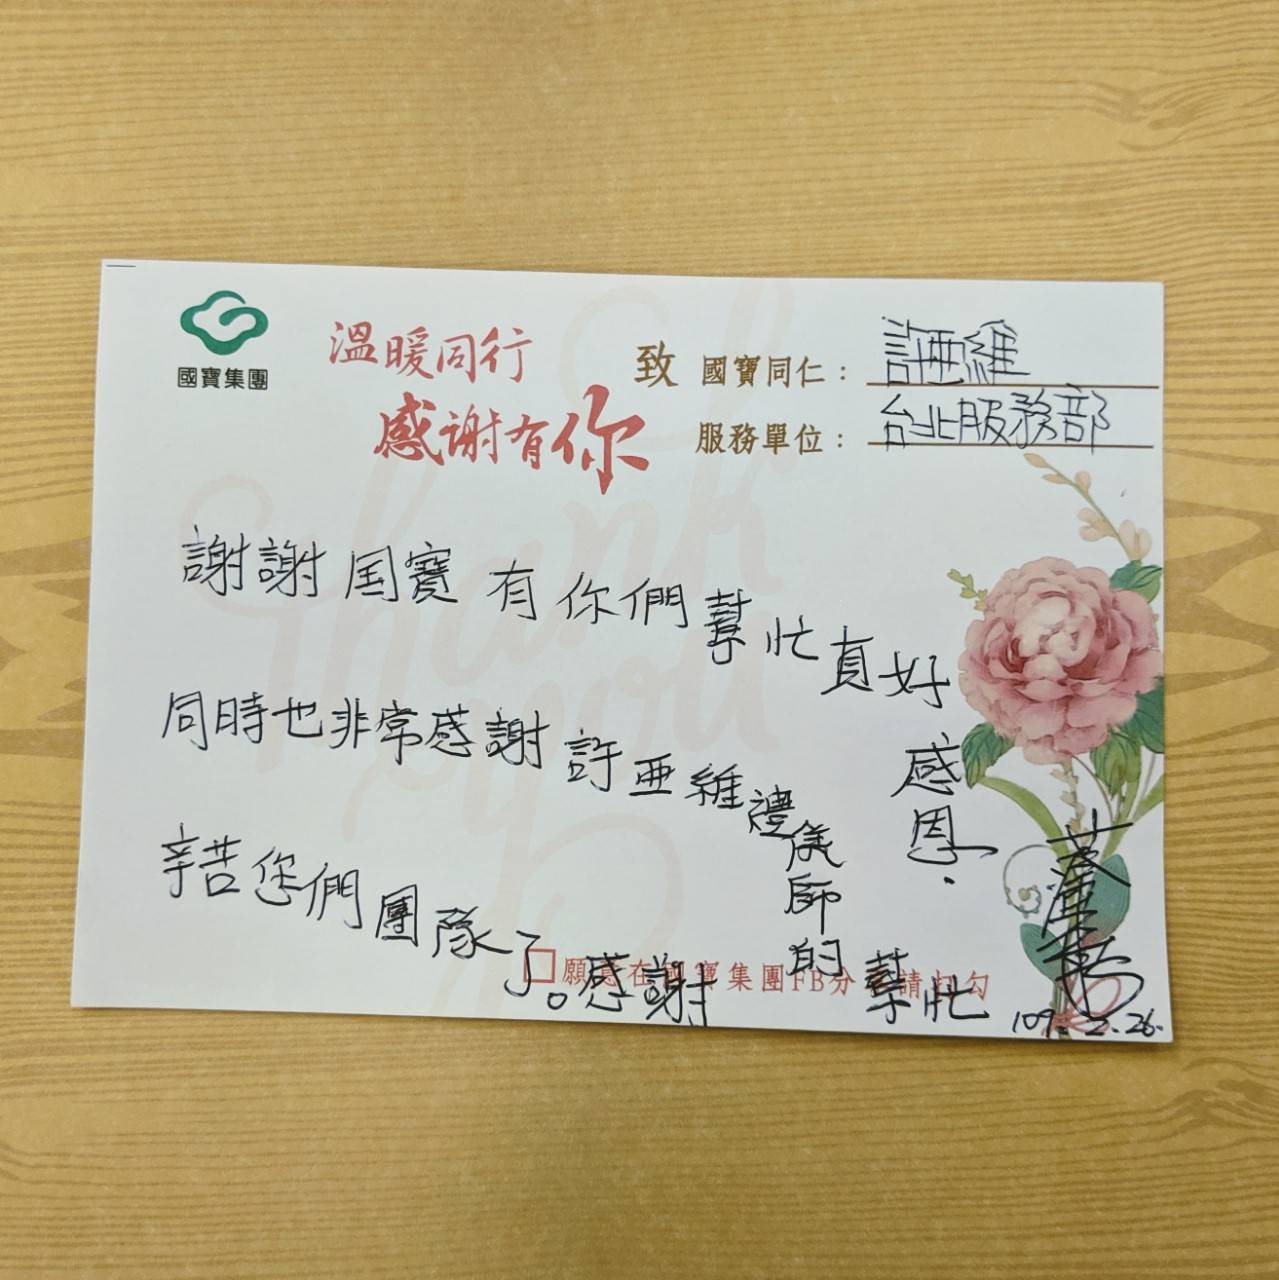 國寶集團
溫暖同行
感謝有你
致 國寶同仁：許亞維
服務單位：台北服務部
Thank you
謝謝国寶有你們幫忙真好感恩.
同時也非常感謝許亞維禮儀師的幫忙
辛苦您們團隊了。感謝
願意在國寶集團FB分 請打勾
109.2.26.